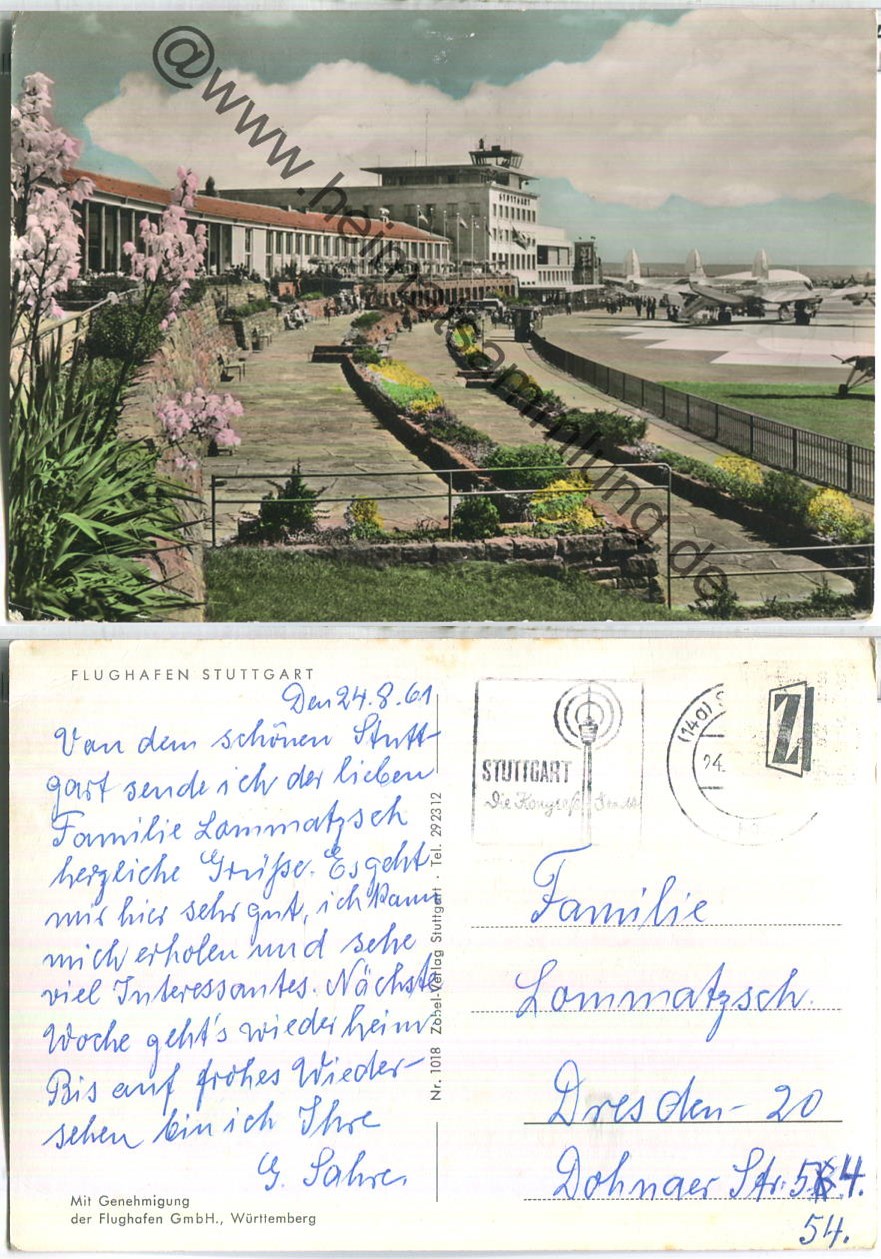 @www.heimatsammlung.de
STUTTGART
FLUGHAFEN STUTTGART
Den 24.8.61
Von dem schönen Stutt-
gart sende ich der lieben
Familie Lommatzsch
herzliche Grüße. Es geht
mir hier sehr gut, ich kann
mich erholen und sehe
viel Interessantes. Nächste
Woche geht's wieder heim
Bis auf frohes Wieder-
sehen bin ich Ihre
G. Sahre.
Mit Genehmigung
der Flughafen GmbH., Württemberg
Nr. 1018 Zobel-Verlag Stuttgart · Tel. 292312
STUTTGART
Die
(14a) S
24.
Z
Familie
Lommatzsch.
Dresden-20
Dohnaer Str. 54.
54.